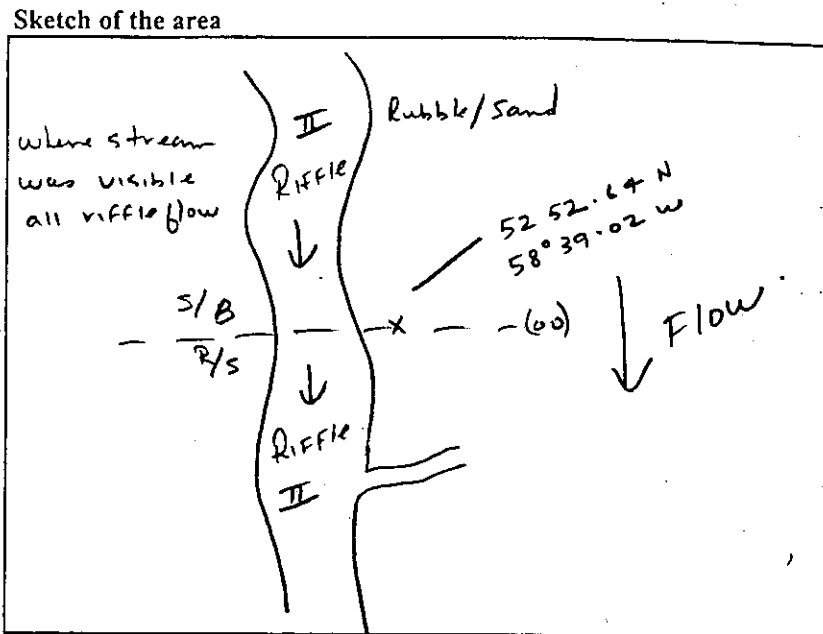 Sketch of the area
where stream
was visible
all riffle flow
II
Riffle
Rubble/sand
52 52.64 N
58° 39.02 W
S/B
R/S
X
(00)
Flow
Riffle
II